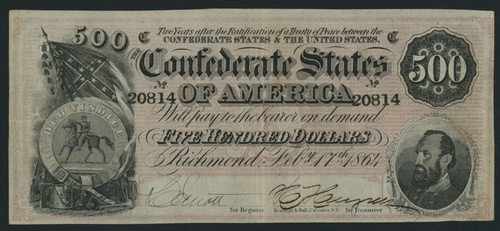 500 C Two Years after the Ratification of a Treaty of Peace between the C
CONFEDERATE STATES & THE UNITED STATES,
THE Confederate States 500
No 20814 OF AMERICA No 20814
Will pay to the bearer on demand
FIVE HUNDRED DOLLARS
Richmond, Feby 17th 1864
DEO VINDICE
for Register Keatinge & Ball, Columbia, S.C. for Treasurer